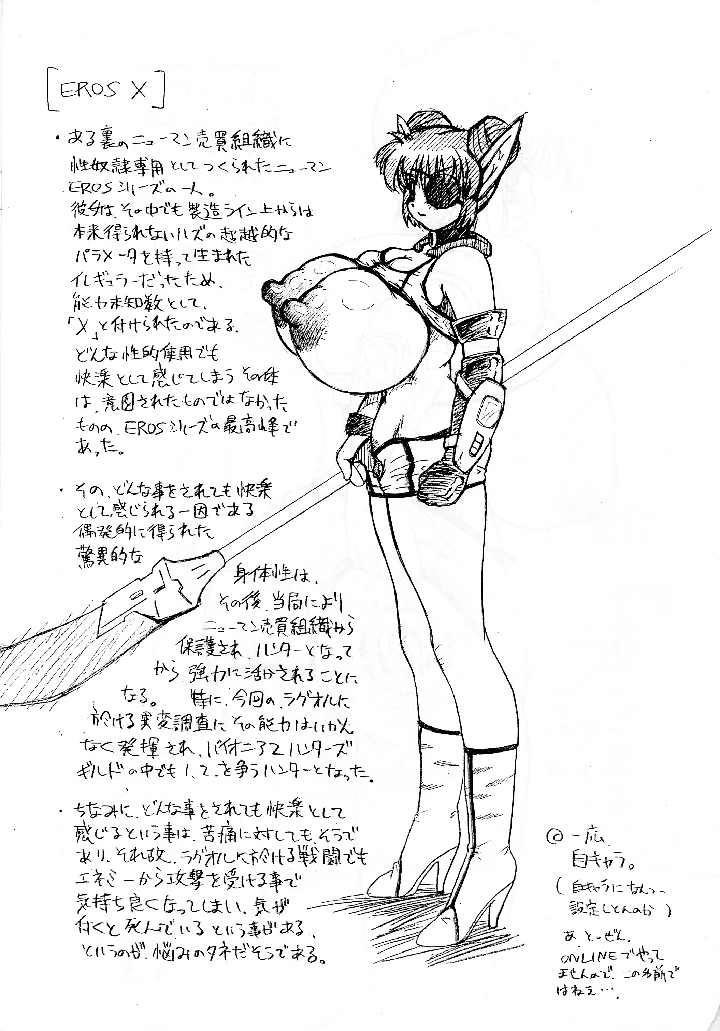 [EROS X]
・ある裏のニューマン売買組織に
性奴隷専用としてつくられたニューマン
EROSシリーズの一人。
彼女は、その中でも製造ライン上からは
本来得られないハズの超越的な
パラメータを持って生まれた
イレギュラーだったため、
能力未知数として、
「X」と付けられたのである。
どんな性的使用でも
快楽として感じてしまうその体
は、意図されたものではなかった
ものの、EROSシリーズの最高峰で
あった。
・その、どんな事をされても快楽
として感じられる一因である
偶発的に得られた
驚異的な
身体性は、
その後、当局により
ニューマン売買組織から
保護され、ハンターとなって
から、強力に活かされることに
なる。特に、今回の、ラグオルに
於ける異変調査にその能力はいかん
なく発揮され、パイオニア2ハンターズ
ギルドの中でも1、2、を争うハンターとなった。
・ちなみに、どんな事をされても快楽として
感じるという事は、苦痛に対してもそうで
あり、それ故、ラグオルに於ける戦闘でも
エネミーから攻撃を受ける事で
気持ち良くなってしまい、気が
付くと死んでいるという事がある、
というのが、悩みのタネだそうである。
◎一応、
自キャラ。
(自キャラになんつー
設定しとんのか)
あ、とーぜん、
ONLINEでやって
ませんので、この名前で
はねぇ…。